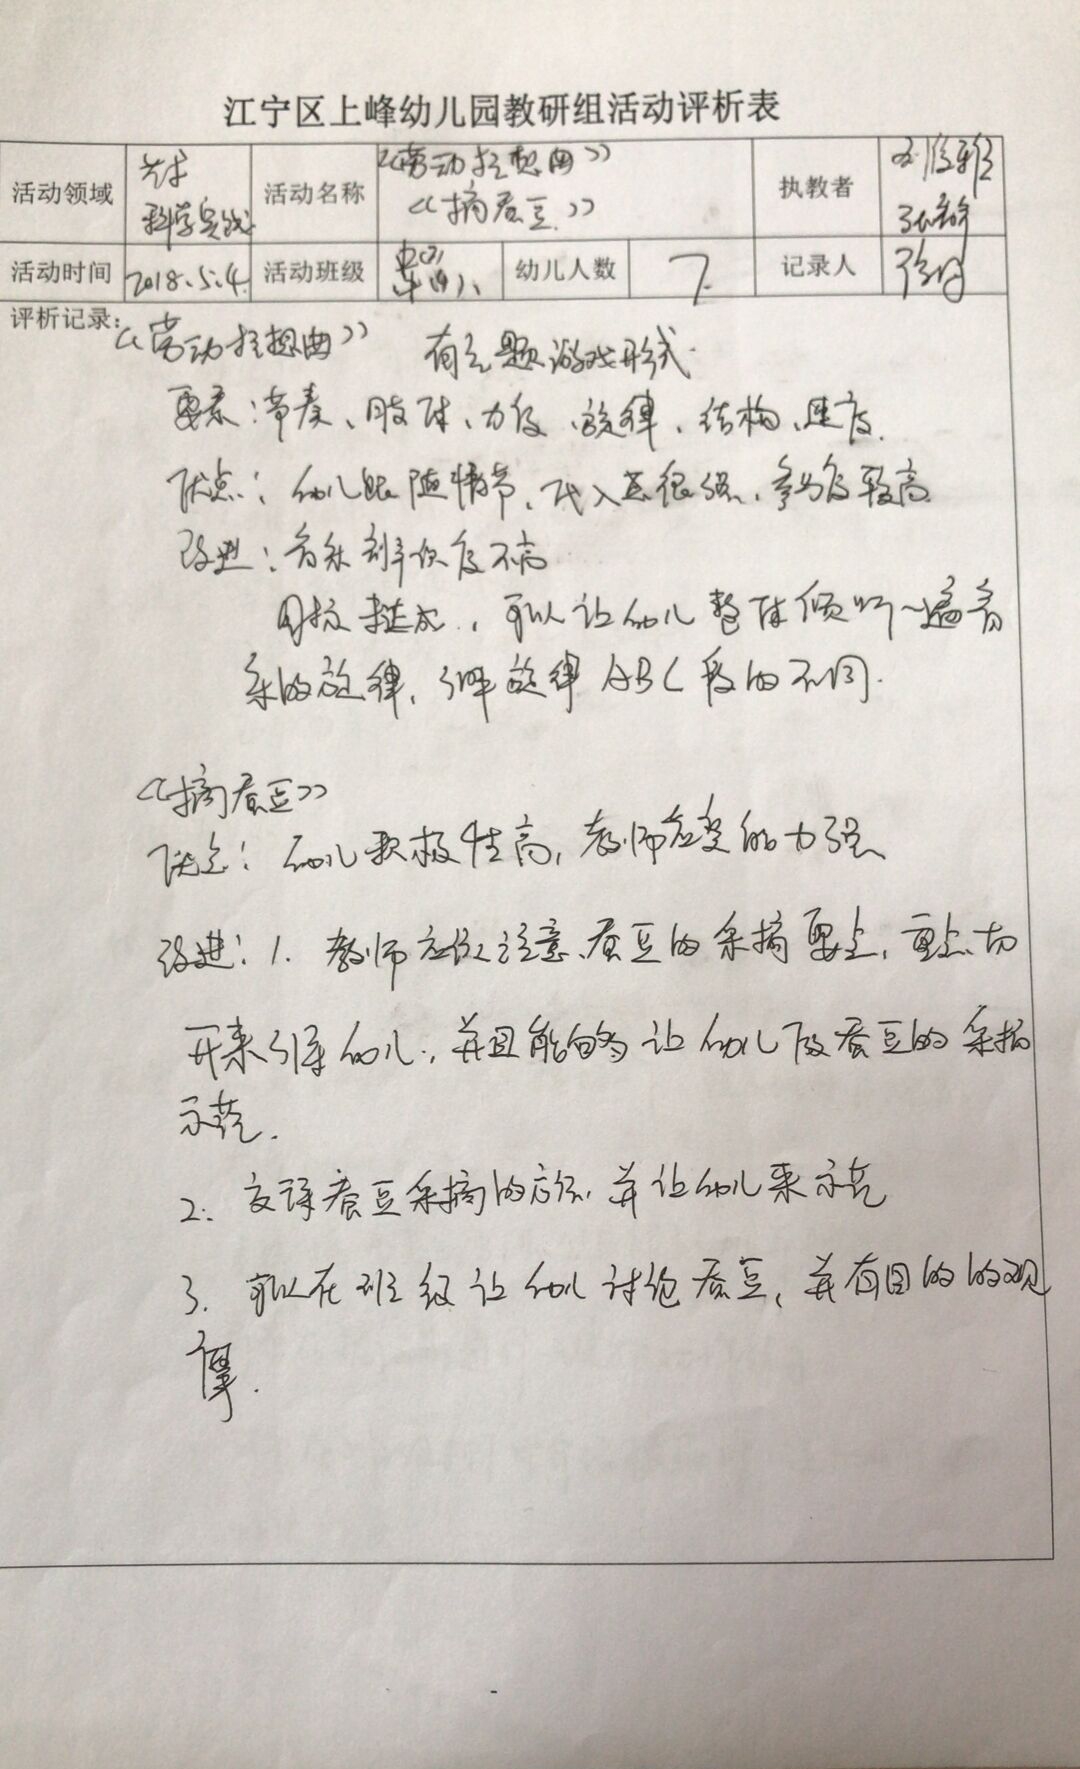 江宁区上峰幼儿园教研组活动评析表
活动领域 艺术 科学实践 活动名称 《劳动狂想曲》 《摘蚕豆》 执教者
活动时间 2018.5.4. 活动班级 幼儿人数 7. 记录人
评析记录:
《劳动狂想曲》 有主题游戏形式.
要素:节奏、肢体、力度、旋律、结构、速度.
优点:幼儿跟随情节,代入感很强,参与度较高.
改进:音乐辨识度不高
目标达成,可以让幼儿整体倾听一遍音
乐的旋律,引导旋律ABC段的不同.
《摘蚕豆》
优点:幼儿积极性高,教师应变能力强
改进:1. 教师应该注意蚕豆的采摘要点,重点切
开来引导幼儿,并且能够让幼儿做蚕豆的采摘
示范.
2. 蚕豆采摘的方法,并让幼儿来示范
3. 可以在班级让幼儿讨论蚕豆,并有目的的观
摩.